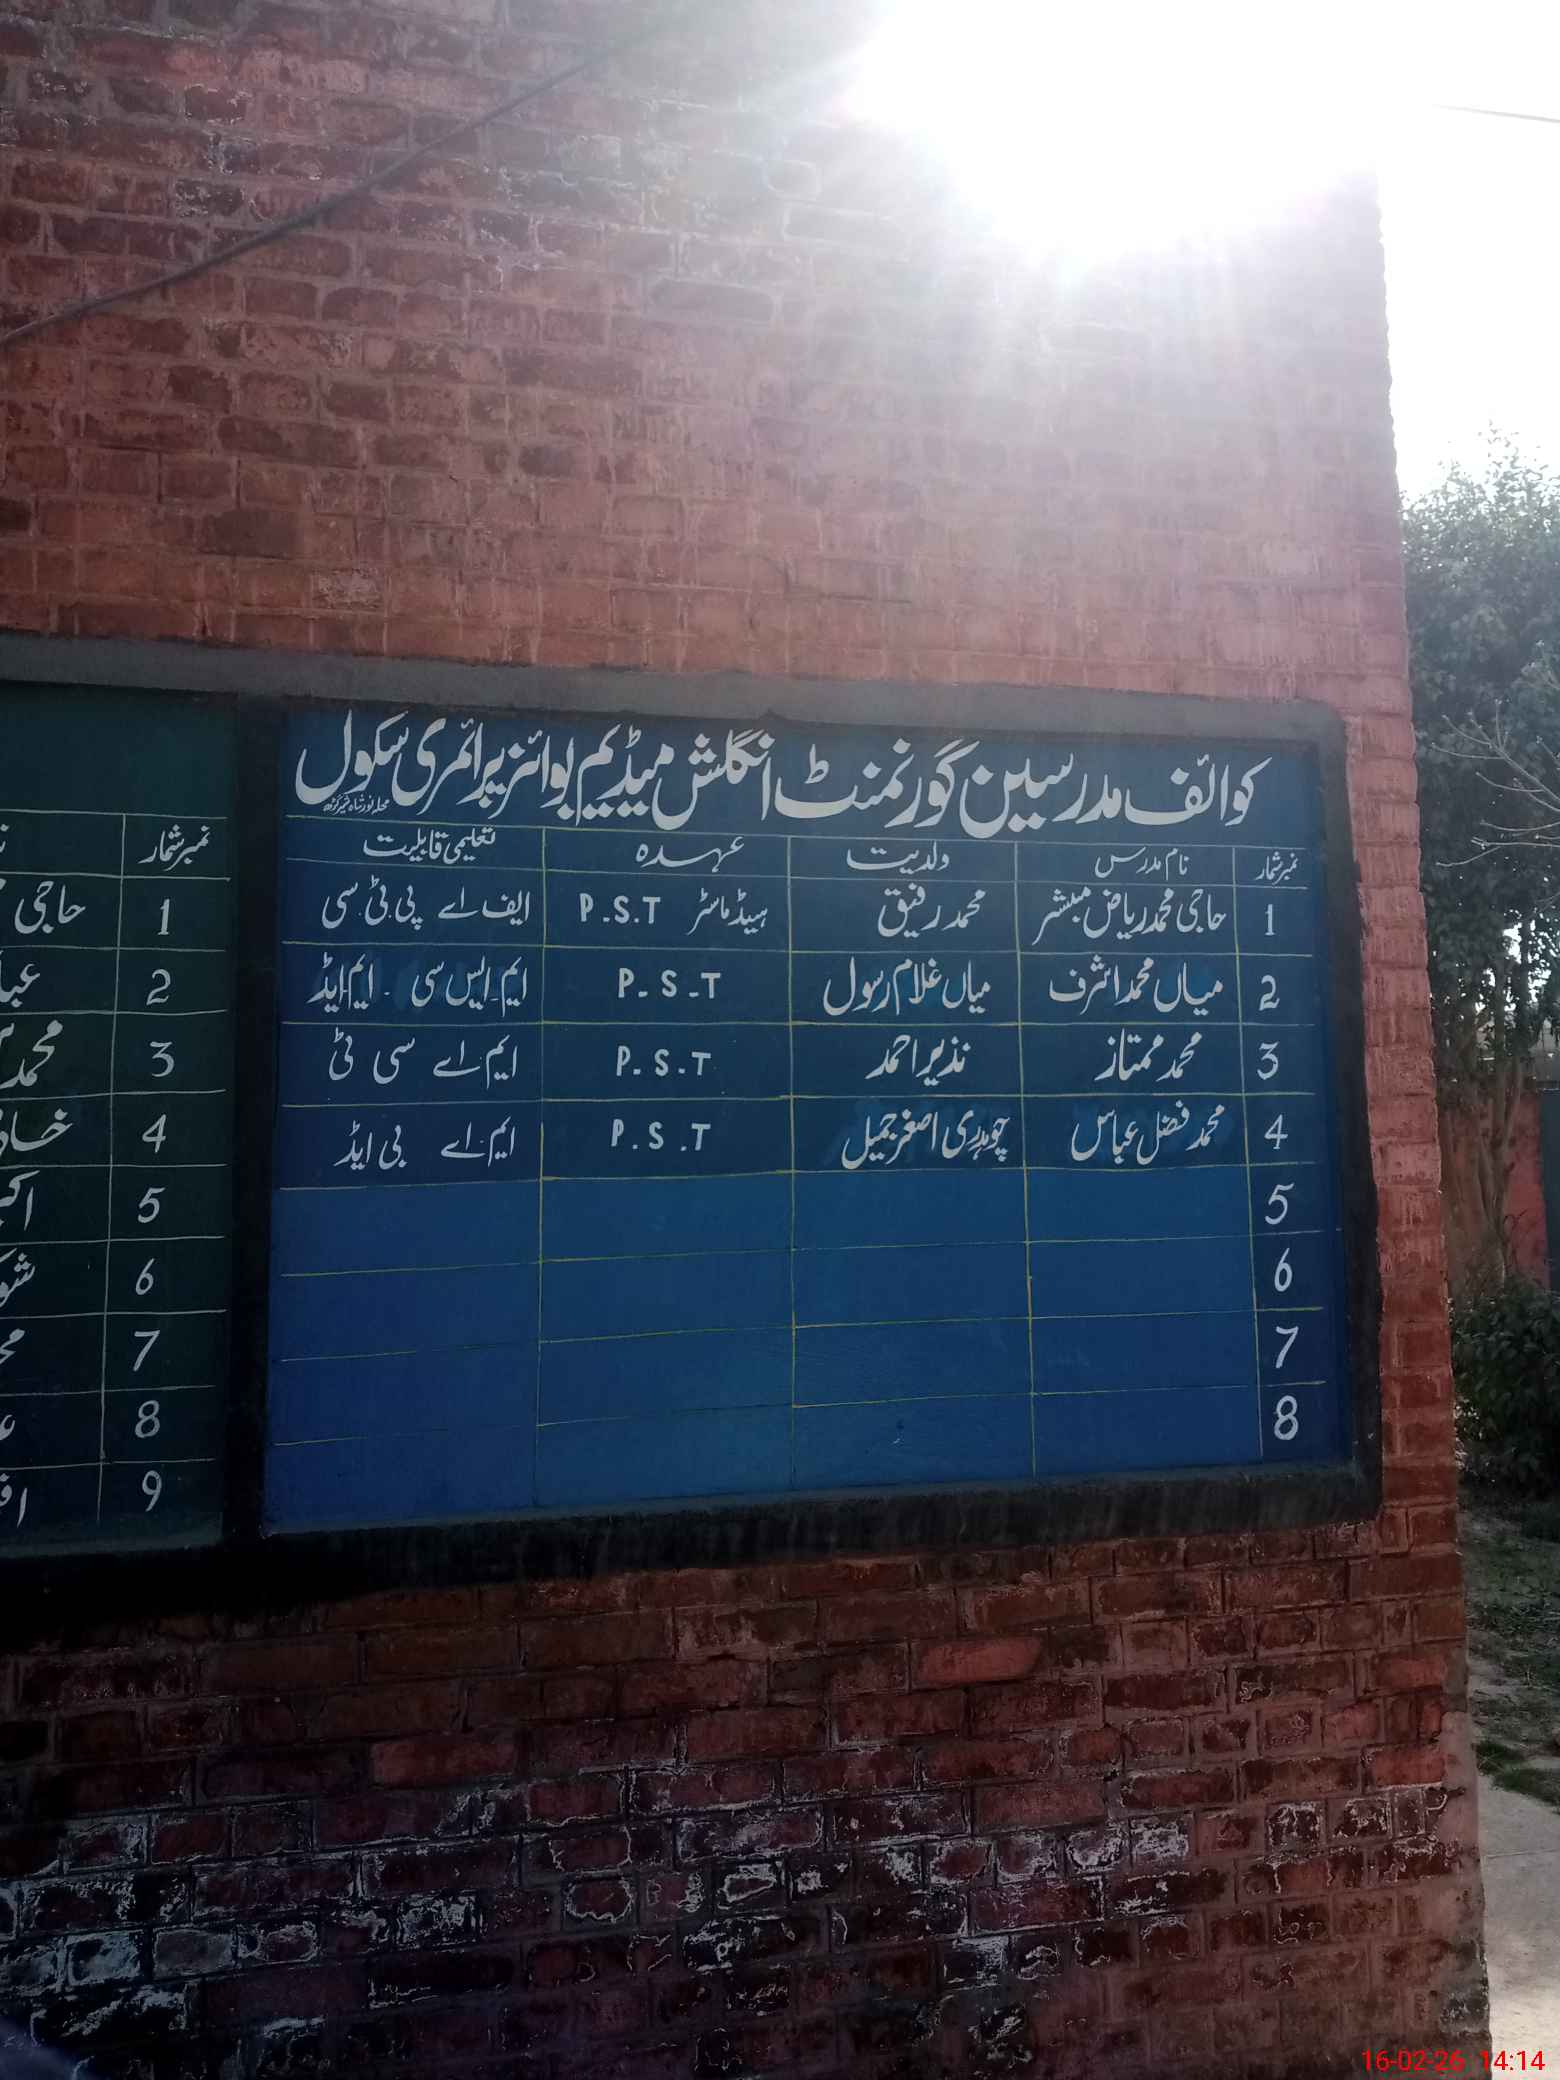 کوائف مدرسین گورنمنٹ انگلش میڈیم بوائز پرائمری سکول
محلہ نور شاہ
نمبر شمار نام مدرس ولدیت عہدہ تعلیمی قابلیت
1 حاجی محمد ریاض مبشر محمد رفیق ہیڈ ماسٹر P.S.T ایف اے پی.ٹی.سی
2 میاں محمد اشرف میاں غلام رسول P.S.T ایم.ایس سی . ایم.ایڈ
3 محمد ممتاز نذیر احمد P.S.T ایم.اے سی ٹی
4 محمد فضل عباس چوہدری اصغر جمیل P.S.T ایم.اے بی ایڈ
5
6
7
8
نمبر شمار
1 حاجی
2
3 محمد
4
5
6
7
8
9
16-02-26 14:14